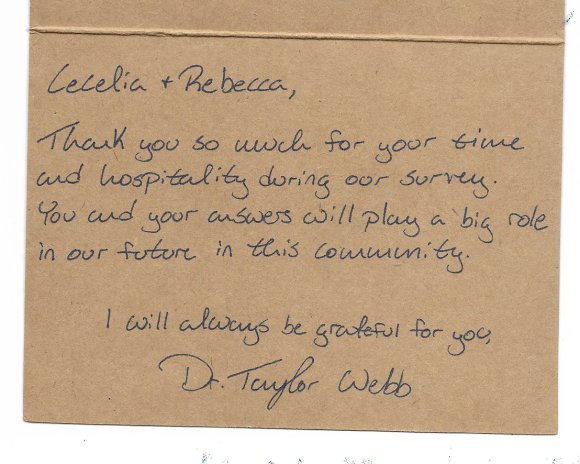 Cecelia + Rebecca,
Thank you so much for your time
and hospitality during our survey.
You and your answers will play a big role
in our future in this community.
I will always be grateful for you,
Dr. Taylor Webb